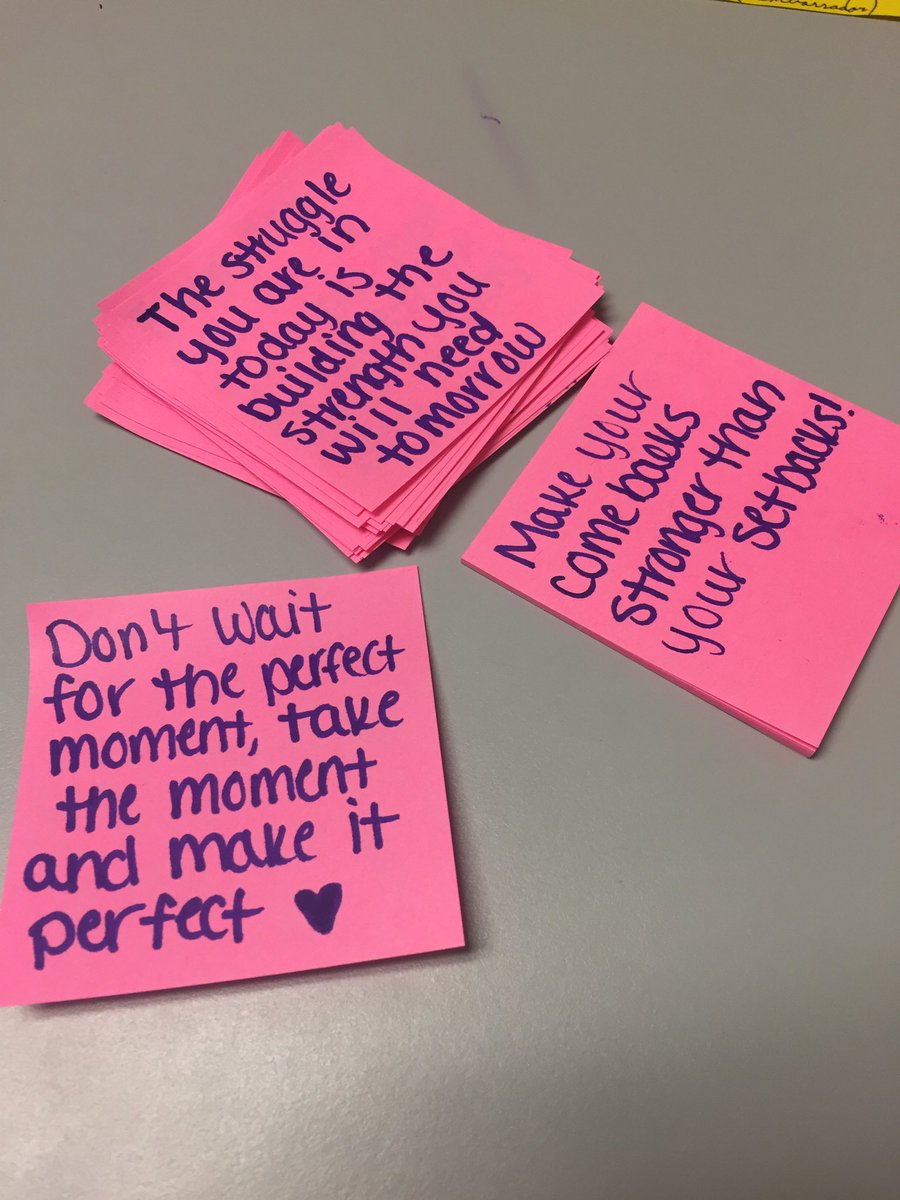 The struggle
you are in
today is
building the
strength you
will need
tomorrow
Make your
come backs
stronger than
your setbacks!
Don't wait
for the perfect
moment, take
the moment
and make it
perfect ♥